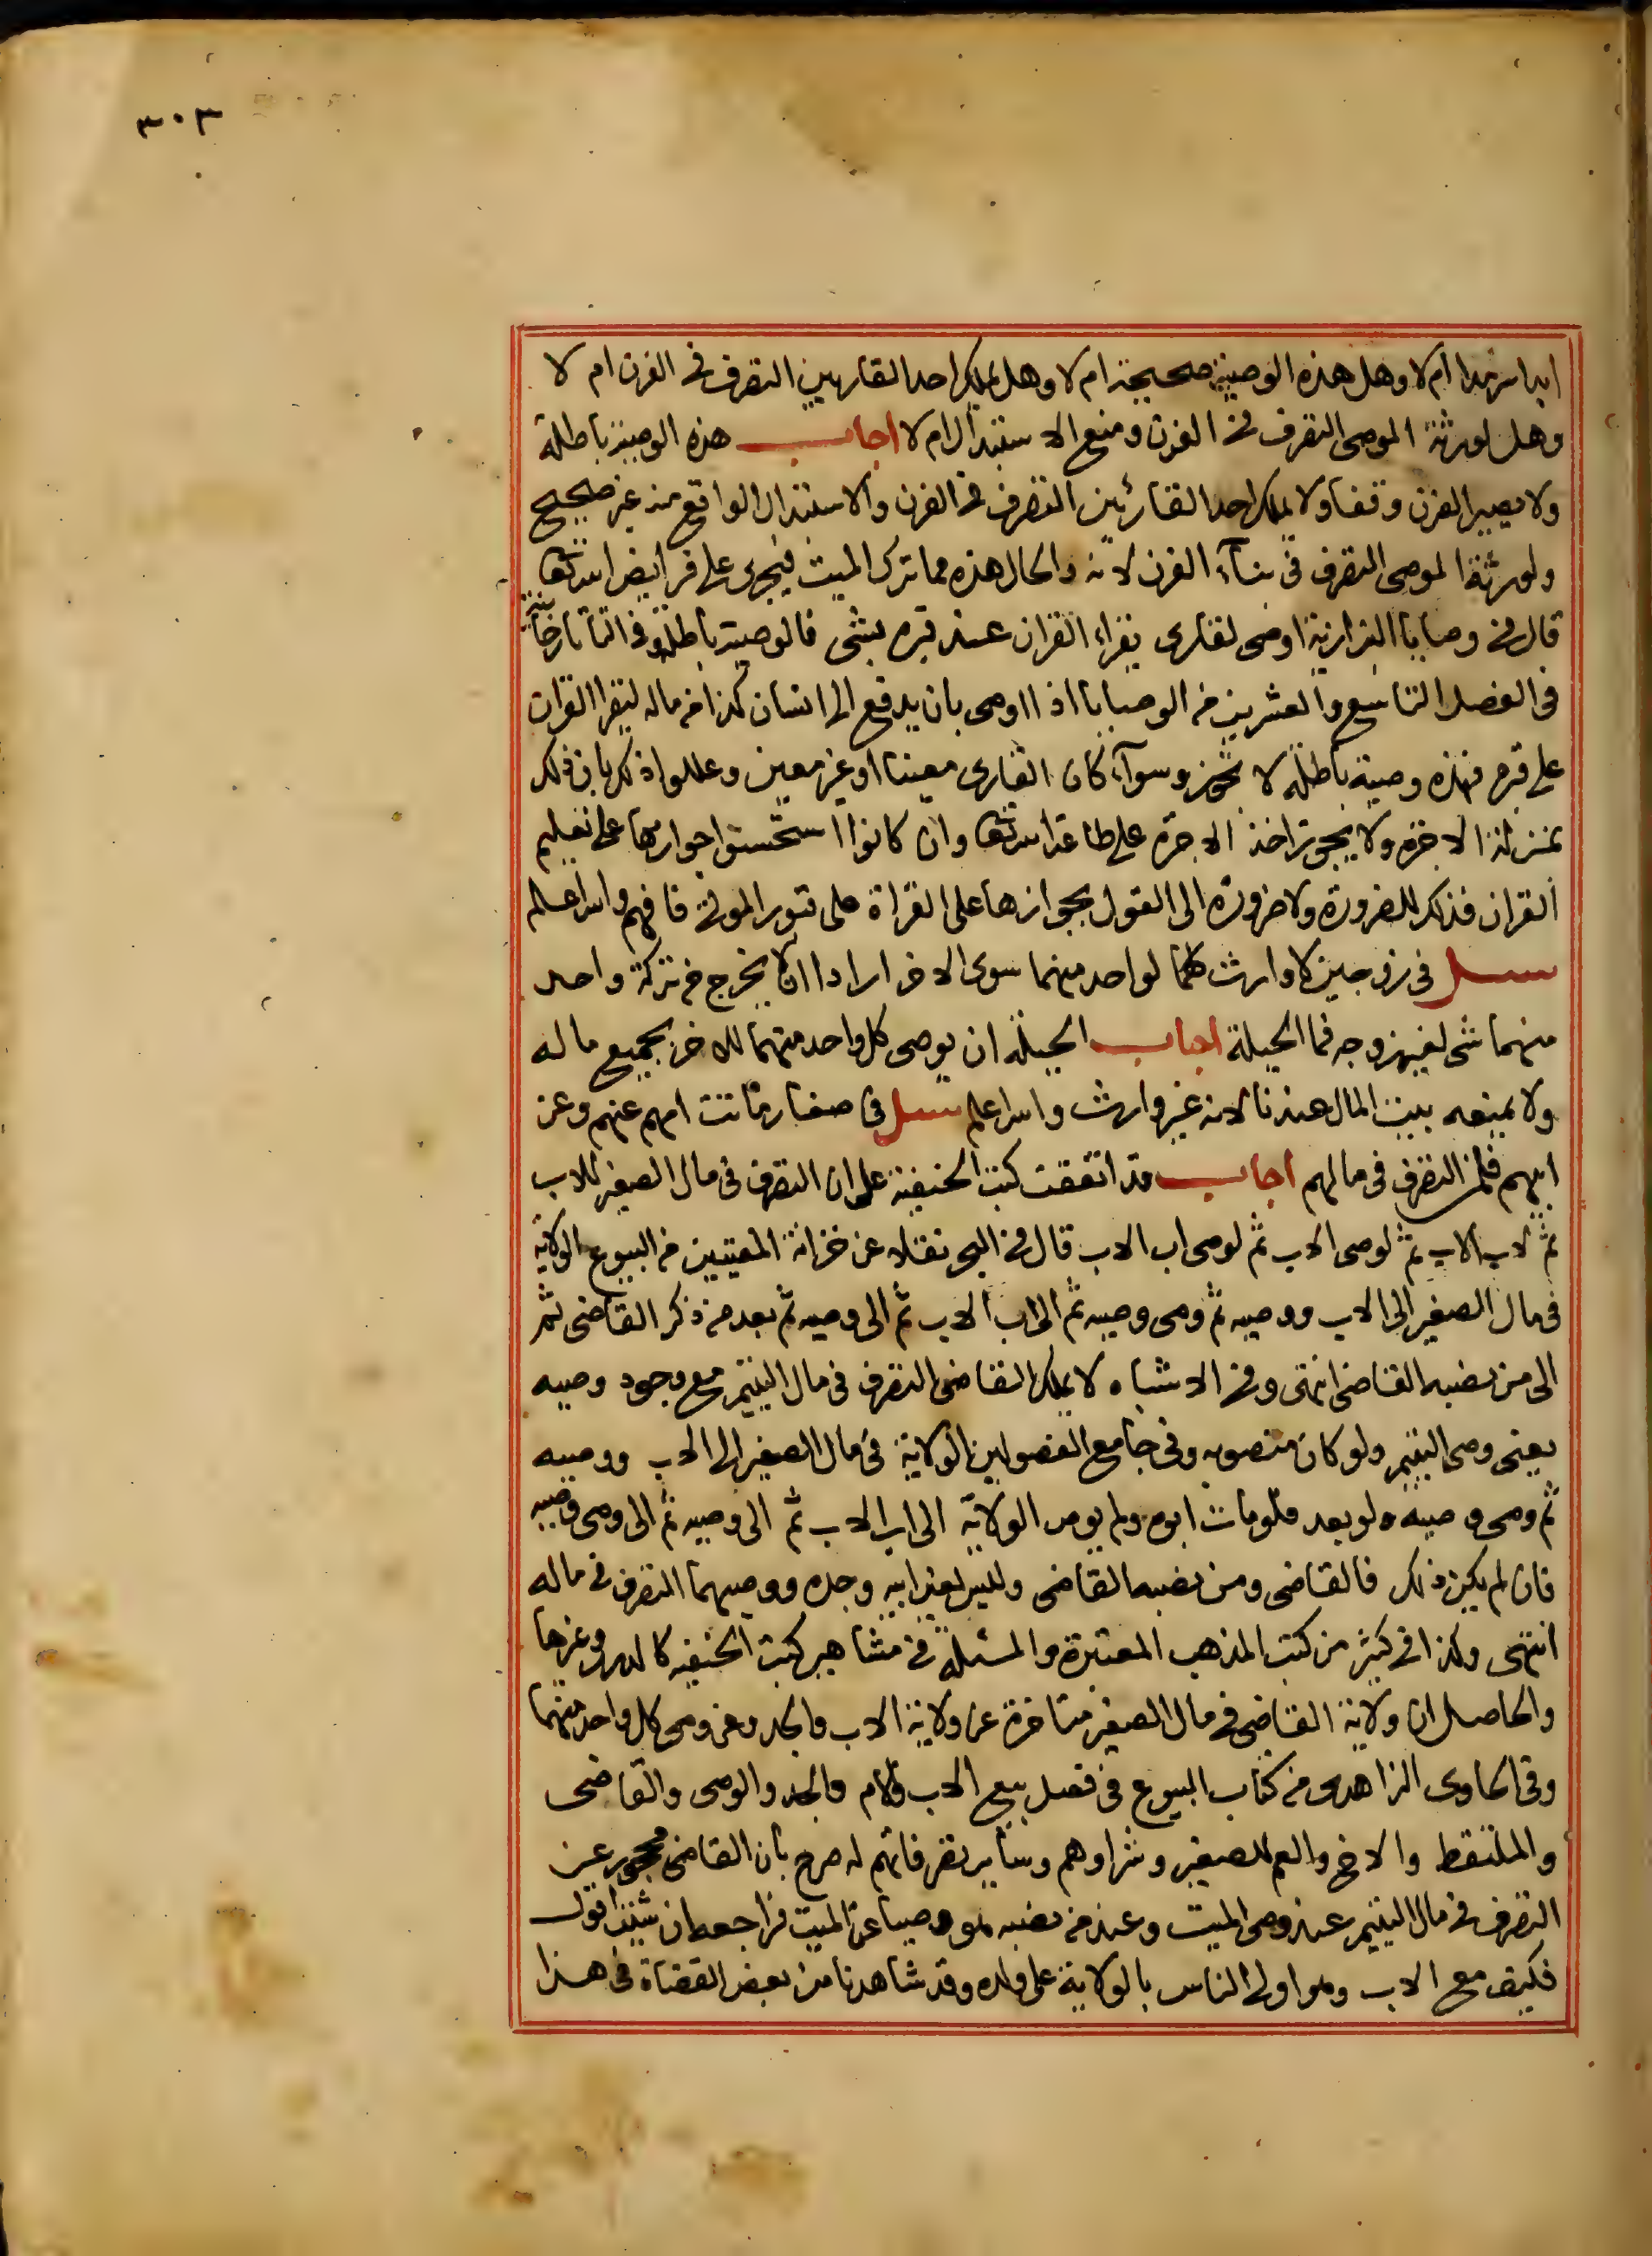 ٣٠٣
ابدا سرمدا ام لا وهل هذه الوصية صحيحة ام لا وهل يملك احد القاريين التصرف في الفرن ام لا
وهل لورثة الموصى التصرف في الفرن ومنع الاستبدال ام لا اجاب هذه الوصية باطلة
ولا يصير الفرن وقفا ولا يملك احد القارئين التصرف في الفرن والاستبدال الواقع منه غير صحيح
ولورثة الموصى التصرف في بناء الفرن لانه والحال هذه مما ترك الميت فيجرى على فرايض الله تعا
قال في وصايا البزازية اوصى لقارى يقراء القران عند قبره بشى فالوصية باطلة وفي التاتارخانية
في الفصل التاسع والعشرين من الوصايا اذا اوصى بان يدفع الى انسان كذا من ماله ليقرا القران
على قبره فهذه وصية باطلة لا تجوز وسوآء كان القارى معينا او غير معين وعللوا ذلك بان ذلك
بمنزلة الاجرة ولا يجوز اخذ الاجرة على طاعة الله تعا وان كانوا استحسنوا جوازها على تعليم
القران فذلك للضرورة ولا ضرورة الى القول بجوازها على القراة على قبور الموتى فافهم والله اعلم
سئل في زوجين لا وارث لهما لواحد منهما سوى الاخر ارادا ان لا يخرج من تركة واحد
منهما شى لغير زوجه فما الحيلة اجاب الحيلة ان يوصى كل واحد منهما للاخر بجميع ماله
ولا يمنعه بيت المال عندنا لانه غير وارث والله اعلم سئل في صغار ماتت امهم عنهم وعن
ابيهم فلمن التصرف في مالهم اجاب قد اتفقت كتب الحنفية على ان التصرف في مال الصغير للاب
ثم لاب الاب ثم لوصى الاب ثم لوصى اب الاب قال في البحر نقلا عن خزانة المفتيين من البيوع الولاية
في مال الصغير الى الاب ووصيه ثم وصى وصيه ثم الى اب الاب ثم الى وصيه ثم بعد من ذكر القاضى ثم
الى من نصبه القاضى انتهى وفي الاشباه لا يملك القاضى التصرف في مال اليتيم مع وجود وصيه
يعنى وصى اليتيم ولو كان منصوبه وفي جامع الفصولين الولاية في مال الصغير الى الاب ووصيه
ثم وصى وصيه ولو بعد فلو مات ابوه ولم يوص الولاية الى اب الاب ثم الى وصيه ثم الى وصى وصيه
فان لم يكن ذلك فالقاضى ومن نصبه القاضى وليس لغير ابيه وجده ووصيهما التصرف في ماله
انتهى وكذا في كثير من كتب المذهب المعتبرة والمسئلة في مشاهير كتب الحنفيه كالدرر وغيرها
والحاصل ان ولاية القاضى في مال الصغير متاخرة عن ولاية الاب والجد وعن وصى كل واحد منهما
وفي الحاوى الزاهدى من كتاب البيوع في فصل بيع الاب والام والجد والوصى والقاضى
والملتقط والاخ والعم للصغير وشراوهم وساير تصرفاتهم له صرح بان القاضى محجور عن
التصرف في مال اليتيم عند وصى الميت وعند من نصبه هو وصيا عن الميت فراجعه ان شئت اقول
فكيف مع الاب وهو اولى الناس بالولاية على ولده وقد شاهدنا من بعض القضاة في هذا